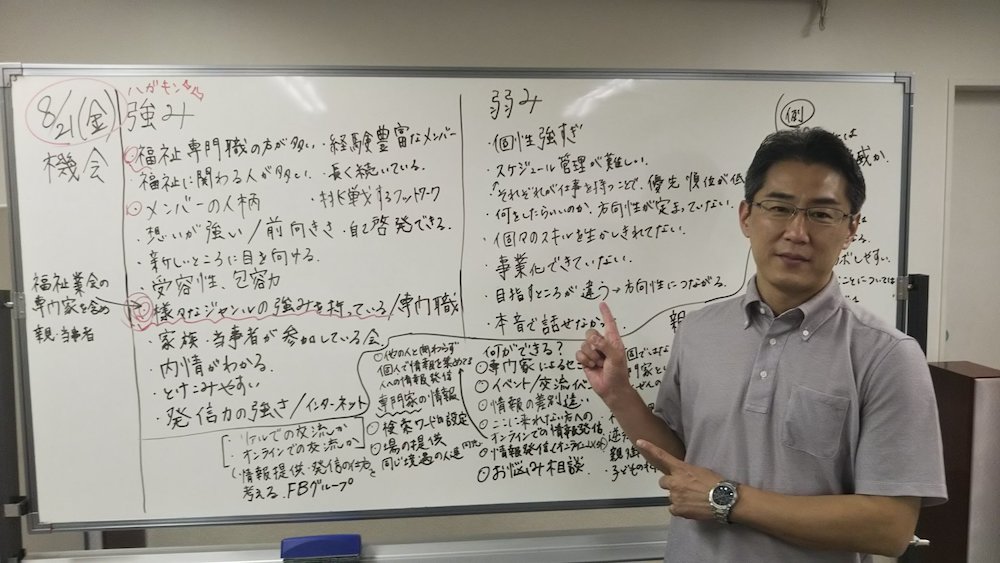 8/21(金)
機会
福祉業会の
専門家を含め
親・当事者
ハガキン
強み
福祉専門職の方が多い・経験豊富なメンバー
福祉に関わる人が多い ・長く続いている。
メンバーの人柄 ・挑戦するフットワーク
・想いが強い/前向きさ・自己啓発できる。
・新しいところに目を向ける。
・受容性、包容力
様々なジャンルの強みを持っている/専門職
・家族・当事者が参加している会
・内情がわかる。
・とけこみやすい
・発信力の強さ/インターネット
・リアルでの交流しか
・オンラインでの交流しか
・情報提供・発信の仕方を
考える FBグループ
○他の人と関わらず
個人で情報を集めてる
人への情報発信
専門家の情報
○検索ワードの設定
○場の提供
同じ境遇の人達
弱み
・個性強すぎ
・スケジュール管理が難しい。
それぞれが仕事を持つことで、優先順位が低
・何をしたらいいのか、方向性が定まっていない。
・個々のスキルを生かしきれてない。
・事業化できていない。
・目指すところが違う→方向性につながる。
・本音で話せなか
何ができる?
○専門家による
○イベント/交流
○情報の差別
○ここに来れない方への
○オンラインでの情報発信
○情報発信
○お悩み相談
(例)
威か
しやすい。
ことについては
親